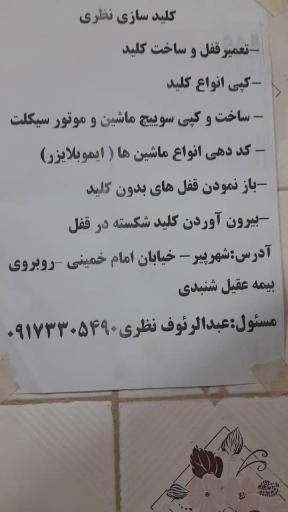 کلید سازی نظری
–تعمیرقفل و ساخت کلید
–کپی انواع کلید
– ساخت و کپی سوییچ ماشین و موتور سیکلت
– کد دهی انواع ماشین ها ( ایموبلایزر)
–باز نمودن قفل های بدون کلید
–بیرون آوردن کلید شکسته در قفل
آدرس:شهرپیر– خیابان امام خمینی –روبروی
بیمه عقیل شنبدی
مسئول:عبدالرئوف نظری۰۹۱۷۳۳۰۵۴۹۰